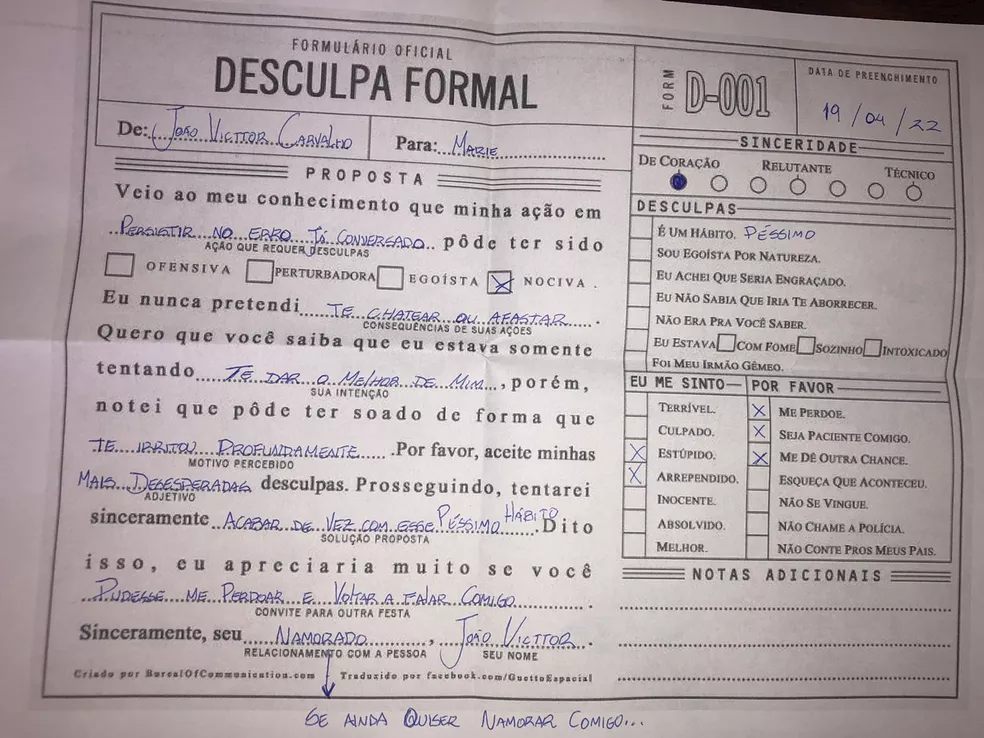 FORMULÁRIO OFICIAL
DESCULPA FORMAL
De: João Victtor Carvalho
Para: Marie
FORM D-001
DATA DE PREENCHIMENTO
19/04/22
PROPOSTA
Veio ao meu conhecimento que minha ação em
Persistir no erro já conversado pôde ter sido
AÇÃO QUE REQUER DESCULPAS
OFENSIVA PERTURBADORA EGOÍSTA X NOCIVA.
Eu nunca pretendi te chatear ou afastar.
CONSEQUÊNCIAS DE SUAS AÇÕES
Quero que você saiba que eu estava somente
tentando te dar o melhor de mim, porém,
SUA INTENÇÃO
notei que pôde ter soado de forma que
te irritou profundamente. Por favor, aceite minhas
MOTIVO PERCEBIDO
mais desesperadas desculpas. Prosseguindo, tentarei
ADJETIVO
sinceramente acabar de vez com esse péssimo hábito. Dito
SOLUÇÃO PROPOSTA
isso, eu apreciaria muito se você
pudesse me perdoar e voltar a falar comigo.
CONVITE PARA OUTRA FESTA
Sinceramente, seu Namorado, João Victtor.
RELACIONAMENTO COM A PESSOA SEU NOME
Criado por BureauOfCommunication.com Traduzido por facebook.com/GuettoEspacial
Se ainda quiser namorar comigo...
SINCERIDADE
DE CORAÇÃO RELUTANTE TÉCNICO
DESCULPAS
É UM HÁBITO. Péssimo
SOU EGOÍSTA POR NATUREZA.
EU ACHEI QUE SERIA ENGRAÇADO.
EU NÃO SABIA QUE IRIA TE ABORRECER.
NÃO ERA PRA VOCÊ SABER.
EU ESTAVA COM FOME SOZINHO INTOXICADO
FOI MEU IRMÃO GÊMEO.
EU ME SINTO
TERRÍVEL.
CULPADO.
X ESTÚPIDO.
X ARREPENDIDO.
INOCENTE.
ABSOLVIDO.
MELHOR.
POR FAVOR
X ME PERDOE.
X SEJA PACIENTE COMIGO.
X ME DÊ OUTRA CHANCE.
ESQUEÇA QUE ACONTECEU.
NÃO SE VINGUE.
NÃO CHAME A POLÍCIA.
NÃO CONTE PROS MEUS PAIS.
NOTAS ADICIONAIS